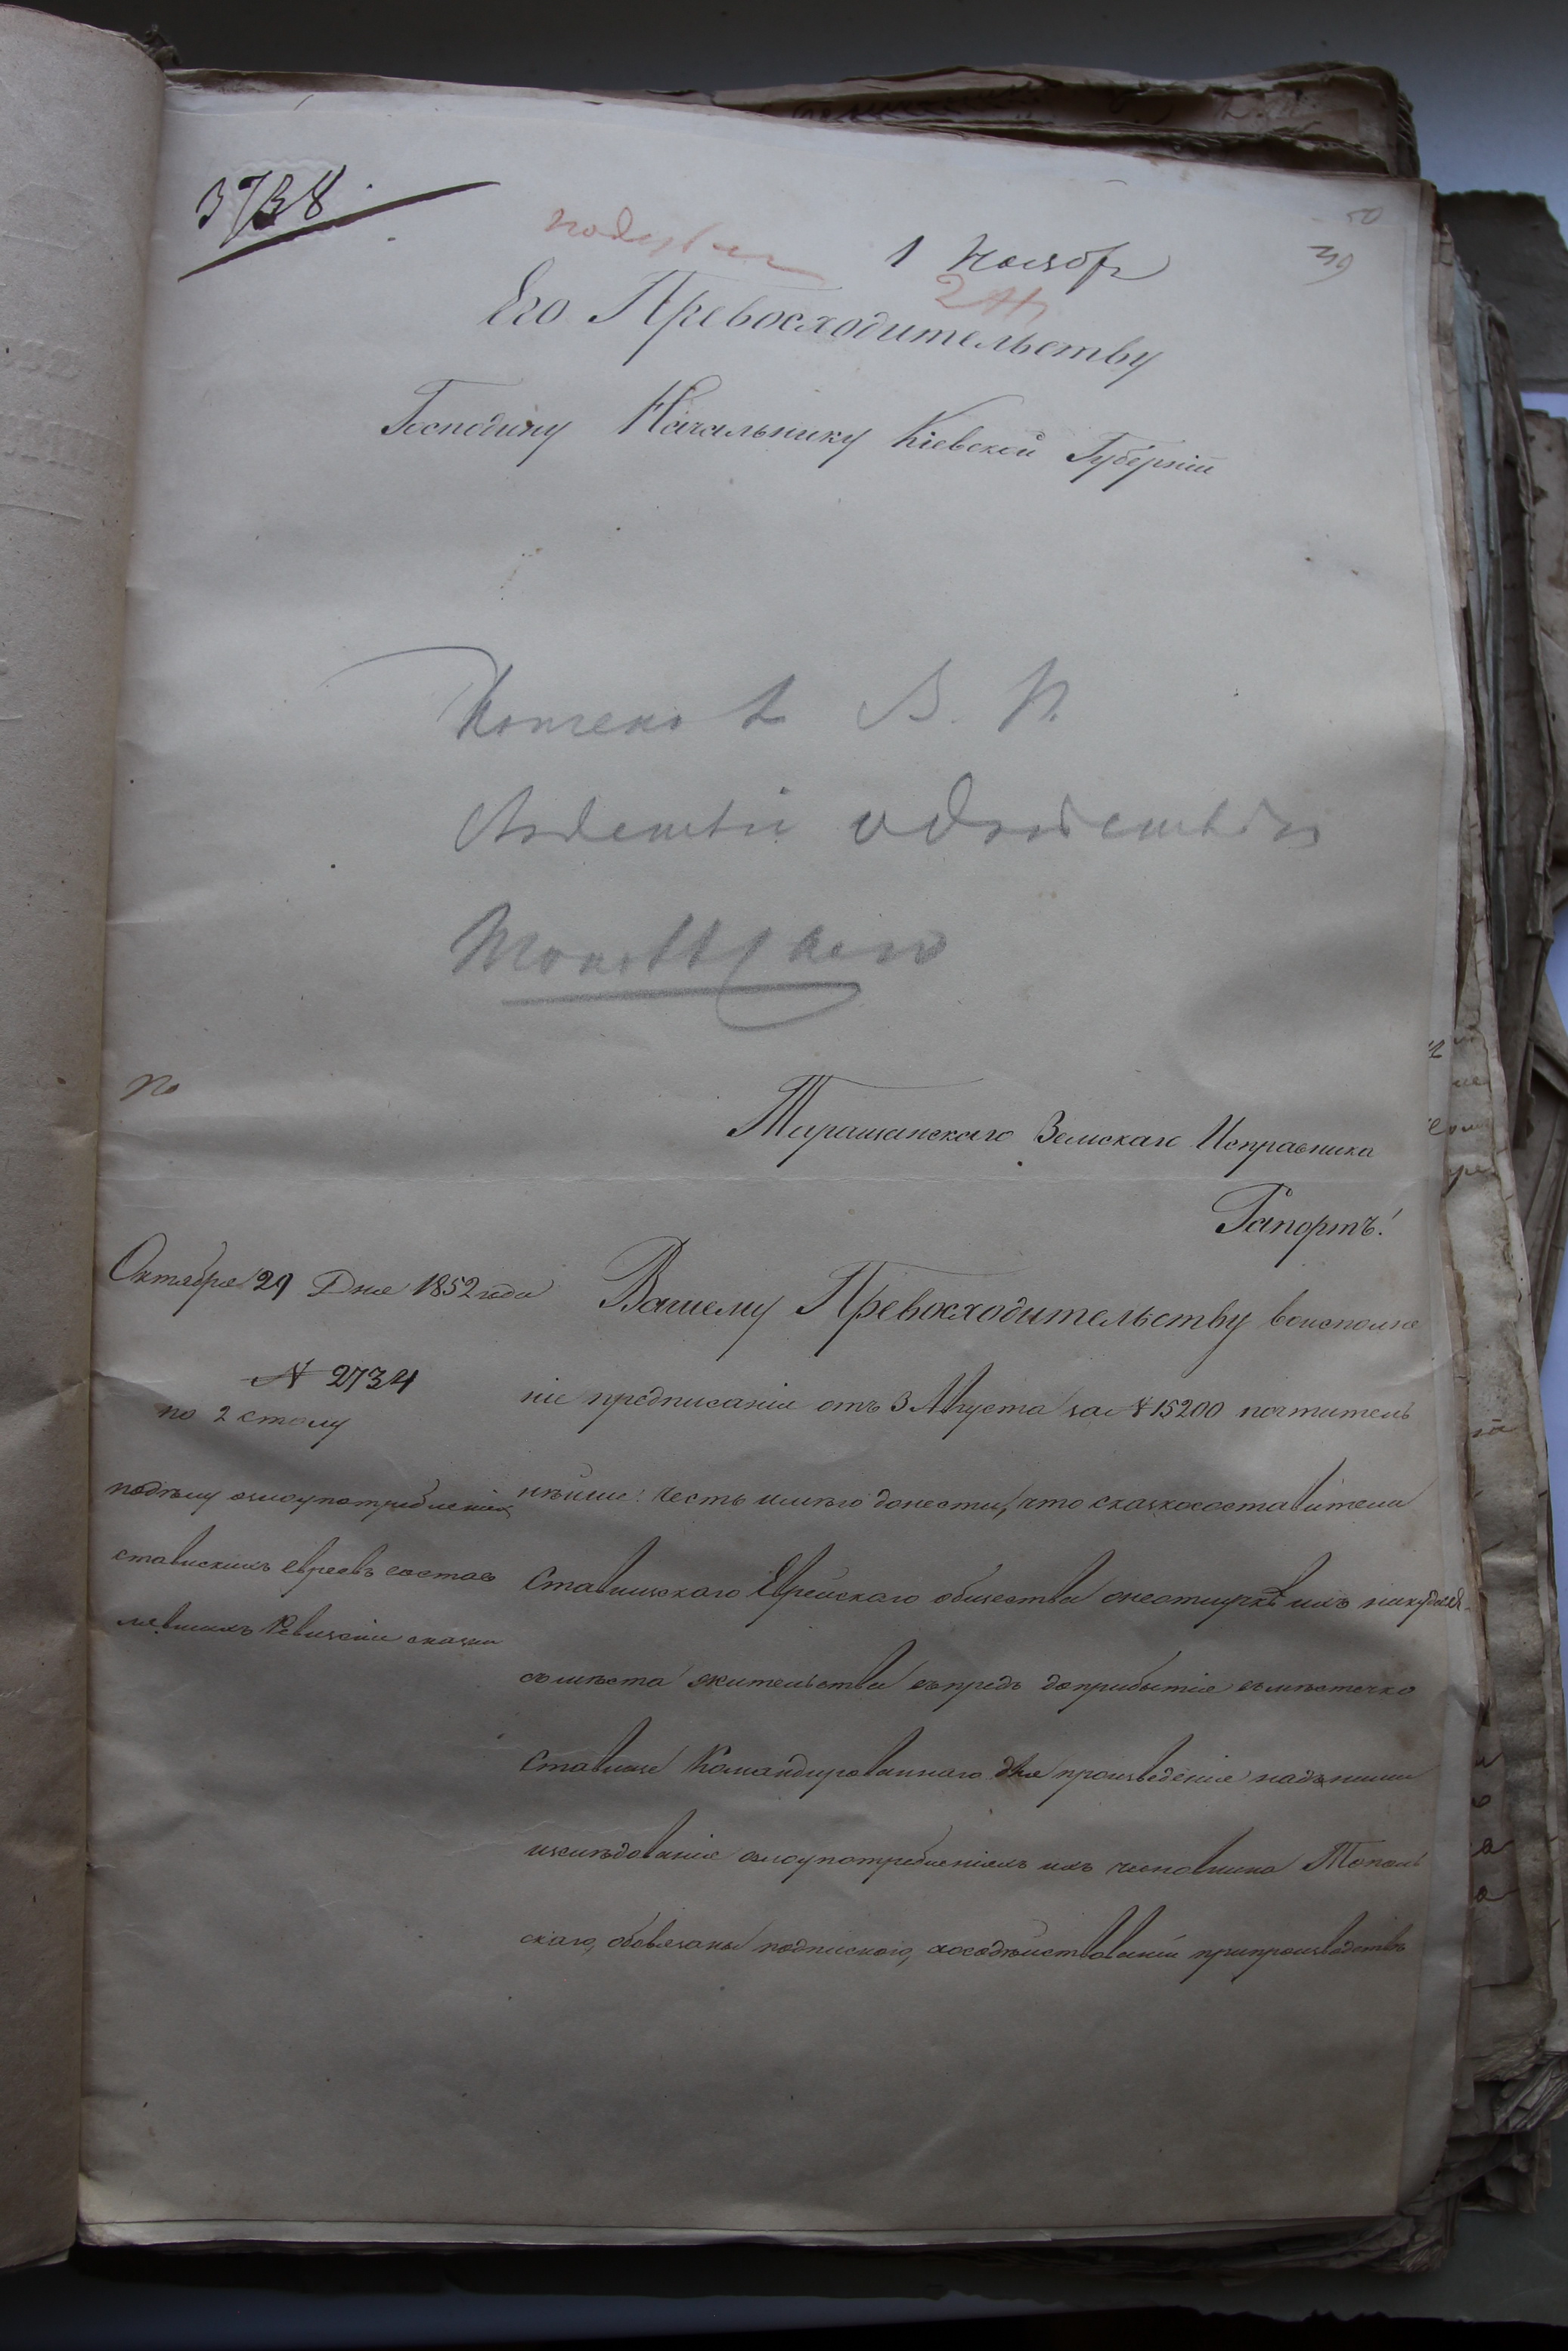 3738
1 Ноябр
Его Превосходительству
Господину Начальнику Кіевской Губерніи
В. П.
по
Таращанскаго Земскаго Исправника
Рапортъ!
Октября 29 Дня 1852 года
№ 2734
по 2 столу
подѣлу озлоупотребленіях
ставискихъ евреевъ состав
лявшихъ Ревизскіи сказки
Вашему Превосходительству воисполне
ніе предписанія отъ 3 Августа за № 15200 почтитель
нѣйше честь имѣю донести, что сказкосоставители
Ставищскаго Еврейскаго общества онеотлучкѣ ихъ никуда
смѣста жительства впредь доприбытія вмѣстечко
Ставище Командированнаго для произведенія надъними
изслѣдованія озлоупотребленіяхъ ихъ чиновника Тополь
скаго, обовязаны подпискою, осодѣйствованіи припроизводствѣ